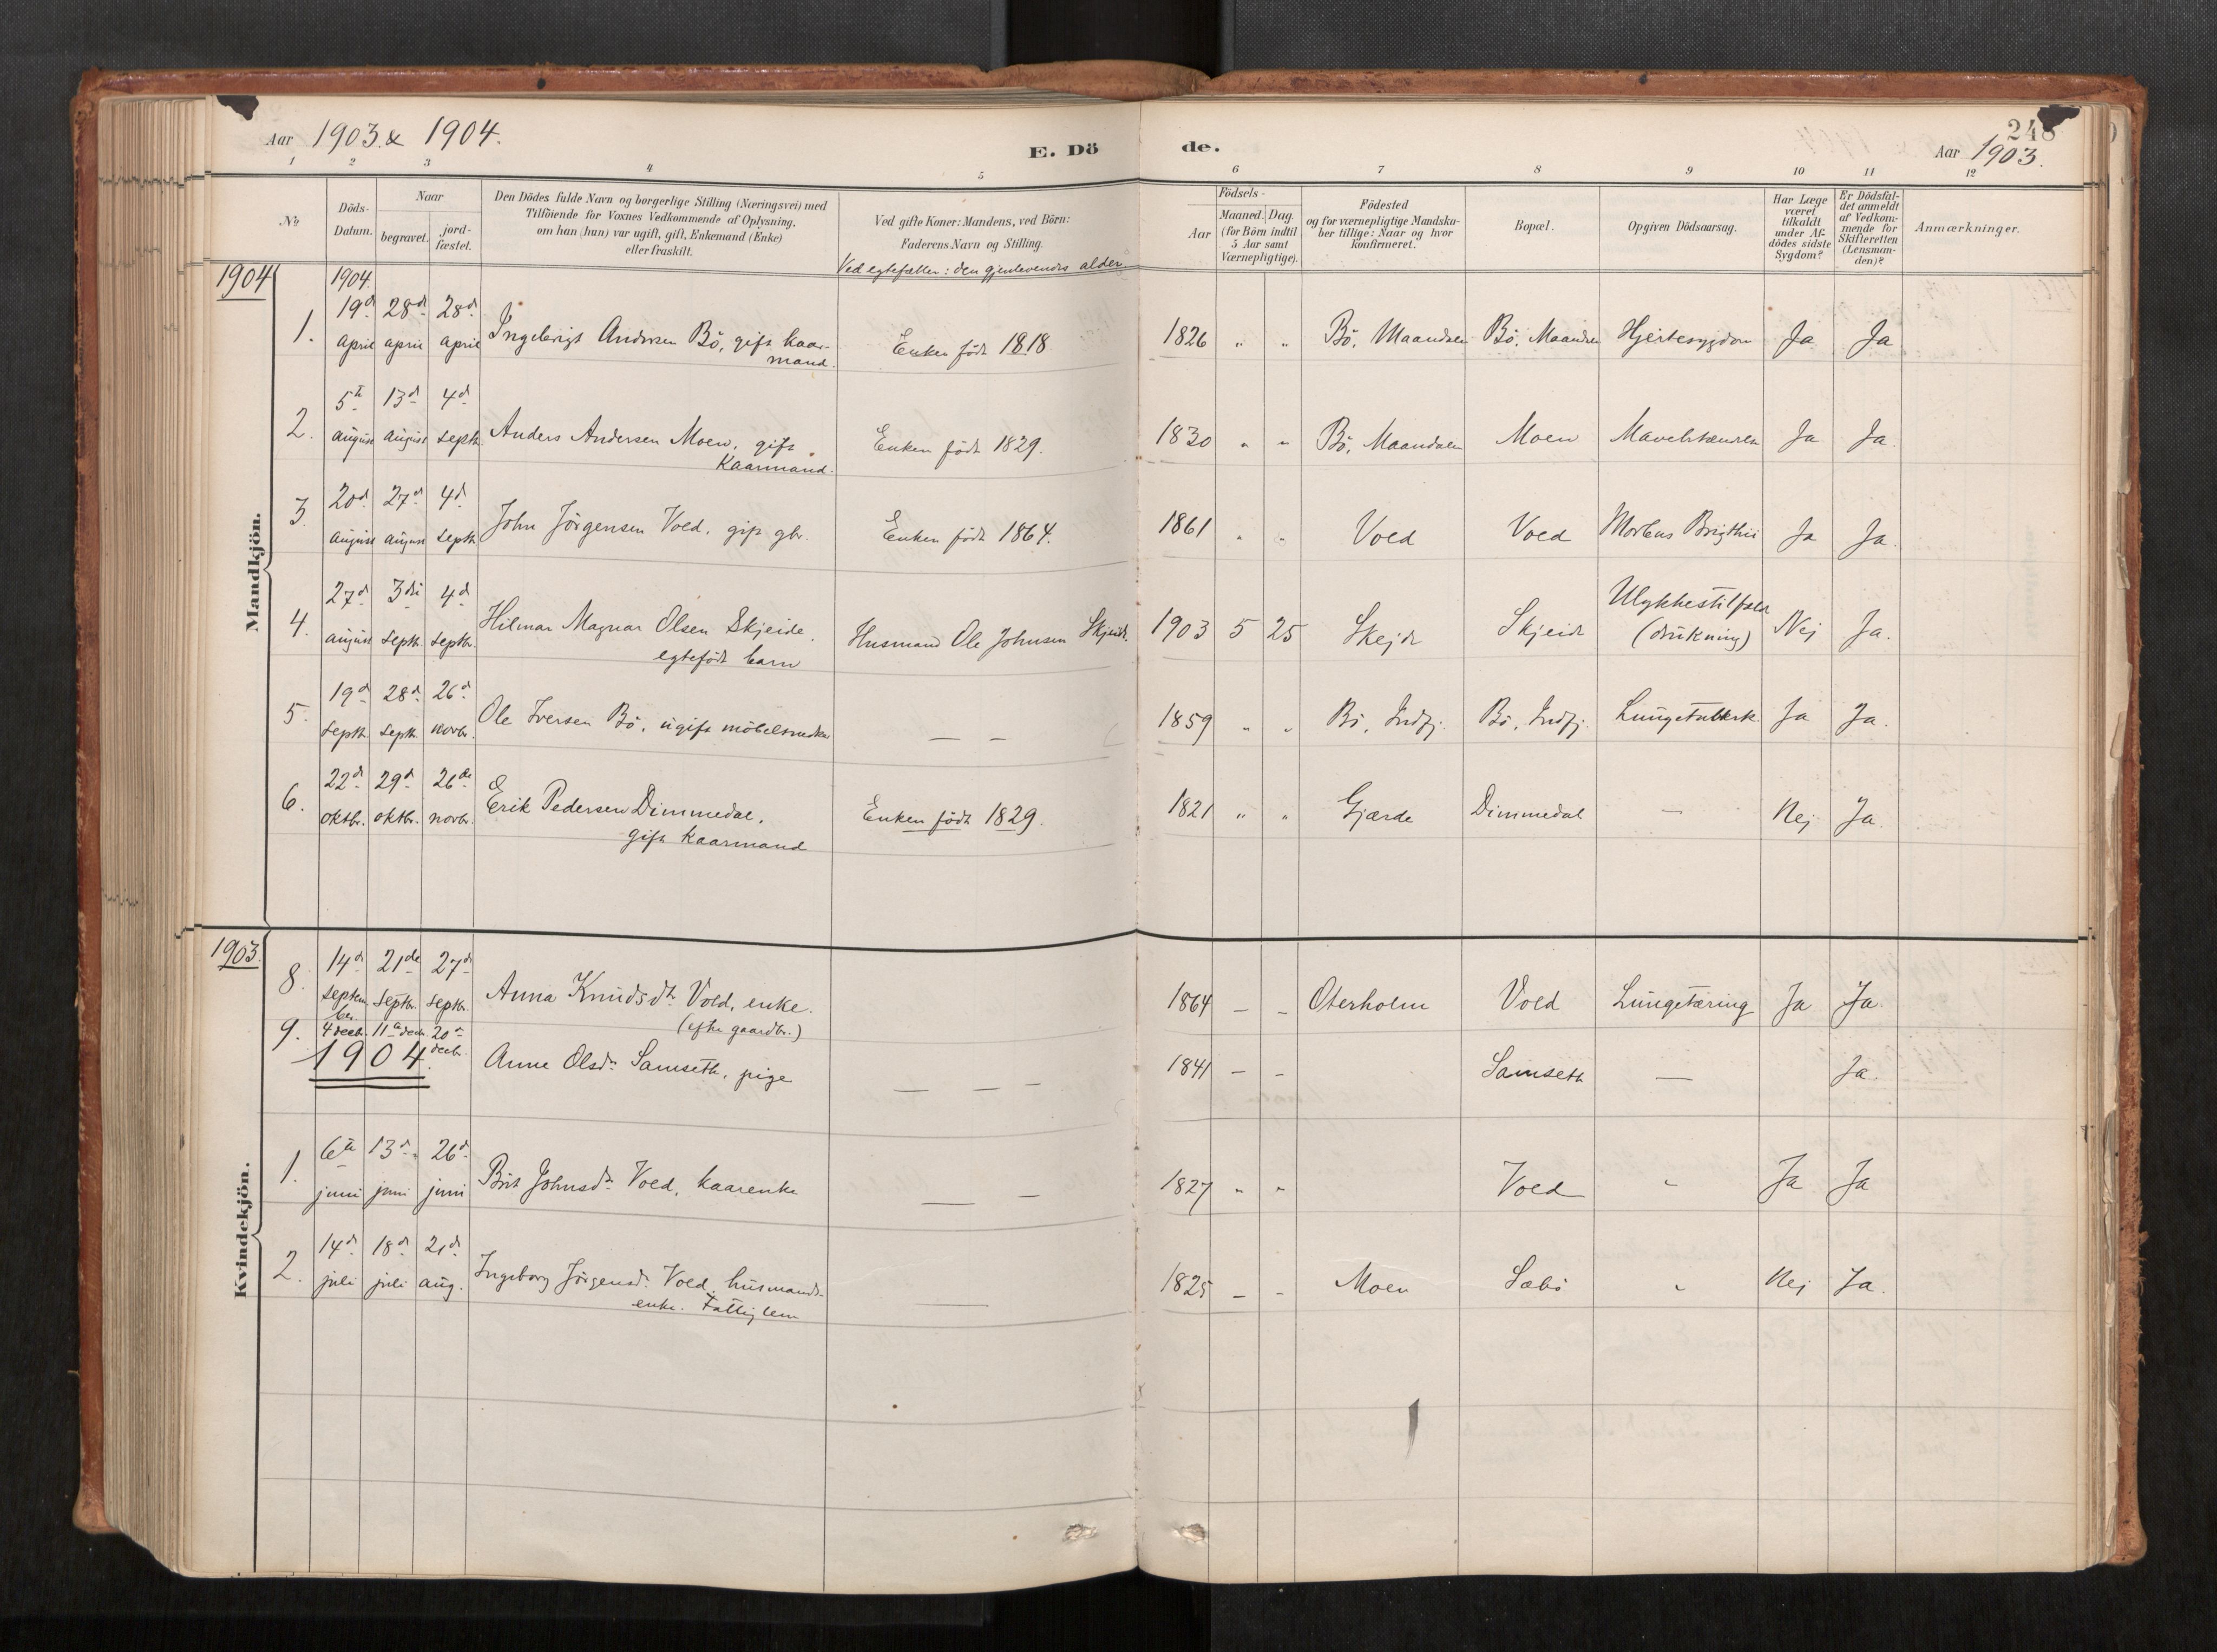 Aar 1903 & 1904.
E. Döde.
248
Aar 1903.
1 2 3 4 5 6 7 8 9 10 11 12
№
Döds-Datum.
Naar
begravet.
jord-fæstet.
Den Dödes fulde Navn og borgerlige Stilling (Næringsvei) med
Tilföiende for Voxnes Vedkommende af Oplysning,
om han (hun) var ugift, gift, Enkemand (Enke)
eller fraskilt.
Ved gifte Koner: Mandens, ved Börn:
Faderens Navn og Stilling.
Ved egtefæller: den gjenlevendes alder.
Födsels-
Aar
Maaned. Dag.
(for Börn indtil
5 Aar samt
Værnepligtige).
Födested
og for værnepligtige Mandska-
ber tillige: Naar og hvor
Konfirmeret.
Bopæl.
Opgiven Dödsaarsag.
Har Læge
været
tilkaldt
under Af-
dödes sidste
Sygdom?
Er Dödsfal-
det anmeldt
af Vedkom-
mende for
Skifteretten
(Lensman-
den)?
Anmærkninger.
Mandkjön.
1904
1904.
1. 19d april 28d april 28d april Ingebrigt Andersen Bö, gift kaar-
mand. Enken född 1818 1826 " " Bö, Maandalen Bö, Maandalen Hjertesygdom Ja Ja
2. 5te august 13d august 4d septb. Anders Andersen Moen, gift
Kaarmand. Enken född 1829. 1830 " " Bö, Maandalen Moen Ja Ja.
3. 20d august 27d august 4d septb. John Jörgensen Vold, gift gbr. Enken född 1864. 1861 " " Vold Vold Morbus Brigthii Ja Ja.
4. 27d august 3die septb. 4d septbr. Hilmar Magnar Olsen Skjeide,
egtefödt barn Husmand Ole Johnsen Skjeide. 1903 5 25 Skejde Skjeide Ulykkestilfæld
(drukning) Nej Ja.
5. 19d septb. 28d septb. 26d novbr. Ole Iversen Bö, ugift möbelsnedker — — 1859 " " Bö, Indfj. Bö, Indfj. Lungetuberk. Ja Ja.
6. 22d oktbr. 29d oktbr. 26de novbr. Erik Pedersen Dimmedal,
gift Kaarmand Enken född 1829. 1821 " " Gjærde Dimmedal — Nej Ja.
Kvindekjön.
1903.
8. 14d septem-
ber 21de septbr. 27d septbr. Anna Knudsdtr Vold, enke.
(efter gaardbr.) 1864 — — Oterholm Vold Lungetæring Ja Ja.
9. 4 decbr. 11te decbr. 20d decbr. Anne Olsdtr Samseth, pige — — — 1841 — — Samseth — Ja.
1904.
1. 6te juni 13d juni 26d juni Brit Johnsdtr Vold, kaarenke — — 1827 " " Vold " Ja Ja
2. 14d juli 18d juli 21d aug. Ingeborg Jörgensdtr Vold, husmands-
enke. Fattiglem — 1825 — — Moen Sæbö " Nej Ja.